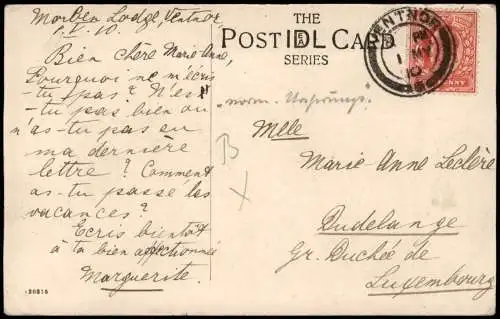 Morben Lodge, Ventnor
1. V. 10.
Bien chère Marie-Anne,
Pourquoi ne m'écris
-tu pas? N'es
-tu pas bien ou
n'as-tu pas eu
ma dernière
lettre? Comment
as-tu passé les
vacances?
Ecris bientôt
à ta bien affectionnée
Marguerite.
·30815
THE
POST IDL CARD
SERIES
VENTNOR
PM
1 MY
10
PENNY
"norm. Ursprungs"
B
X
Melle
Marie-Anne Leclère
Dudelange
Gr. Duchée de
Luxembourg